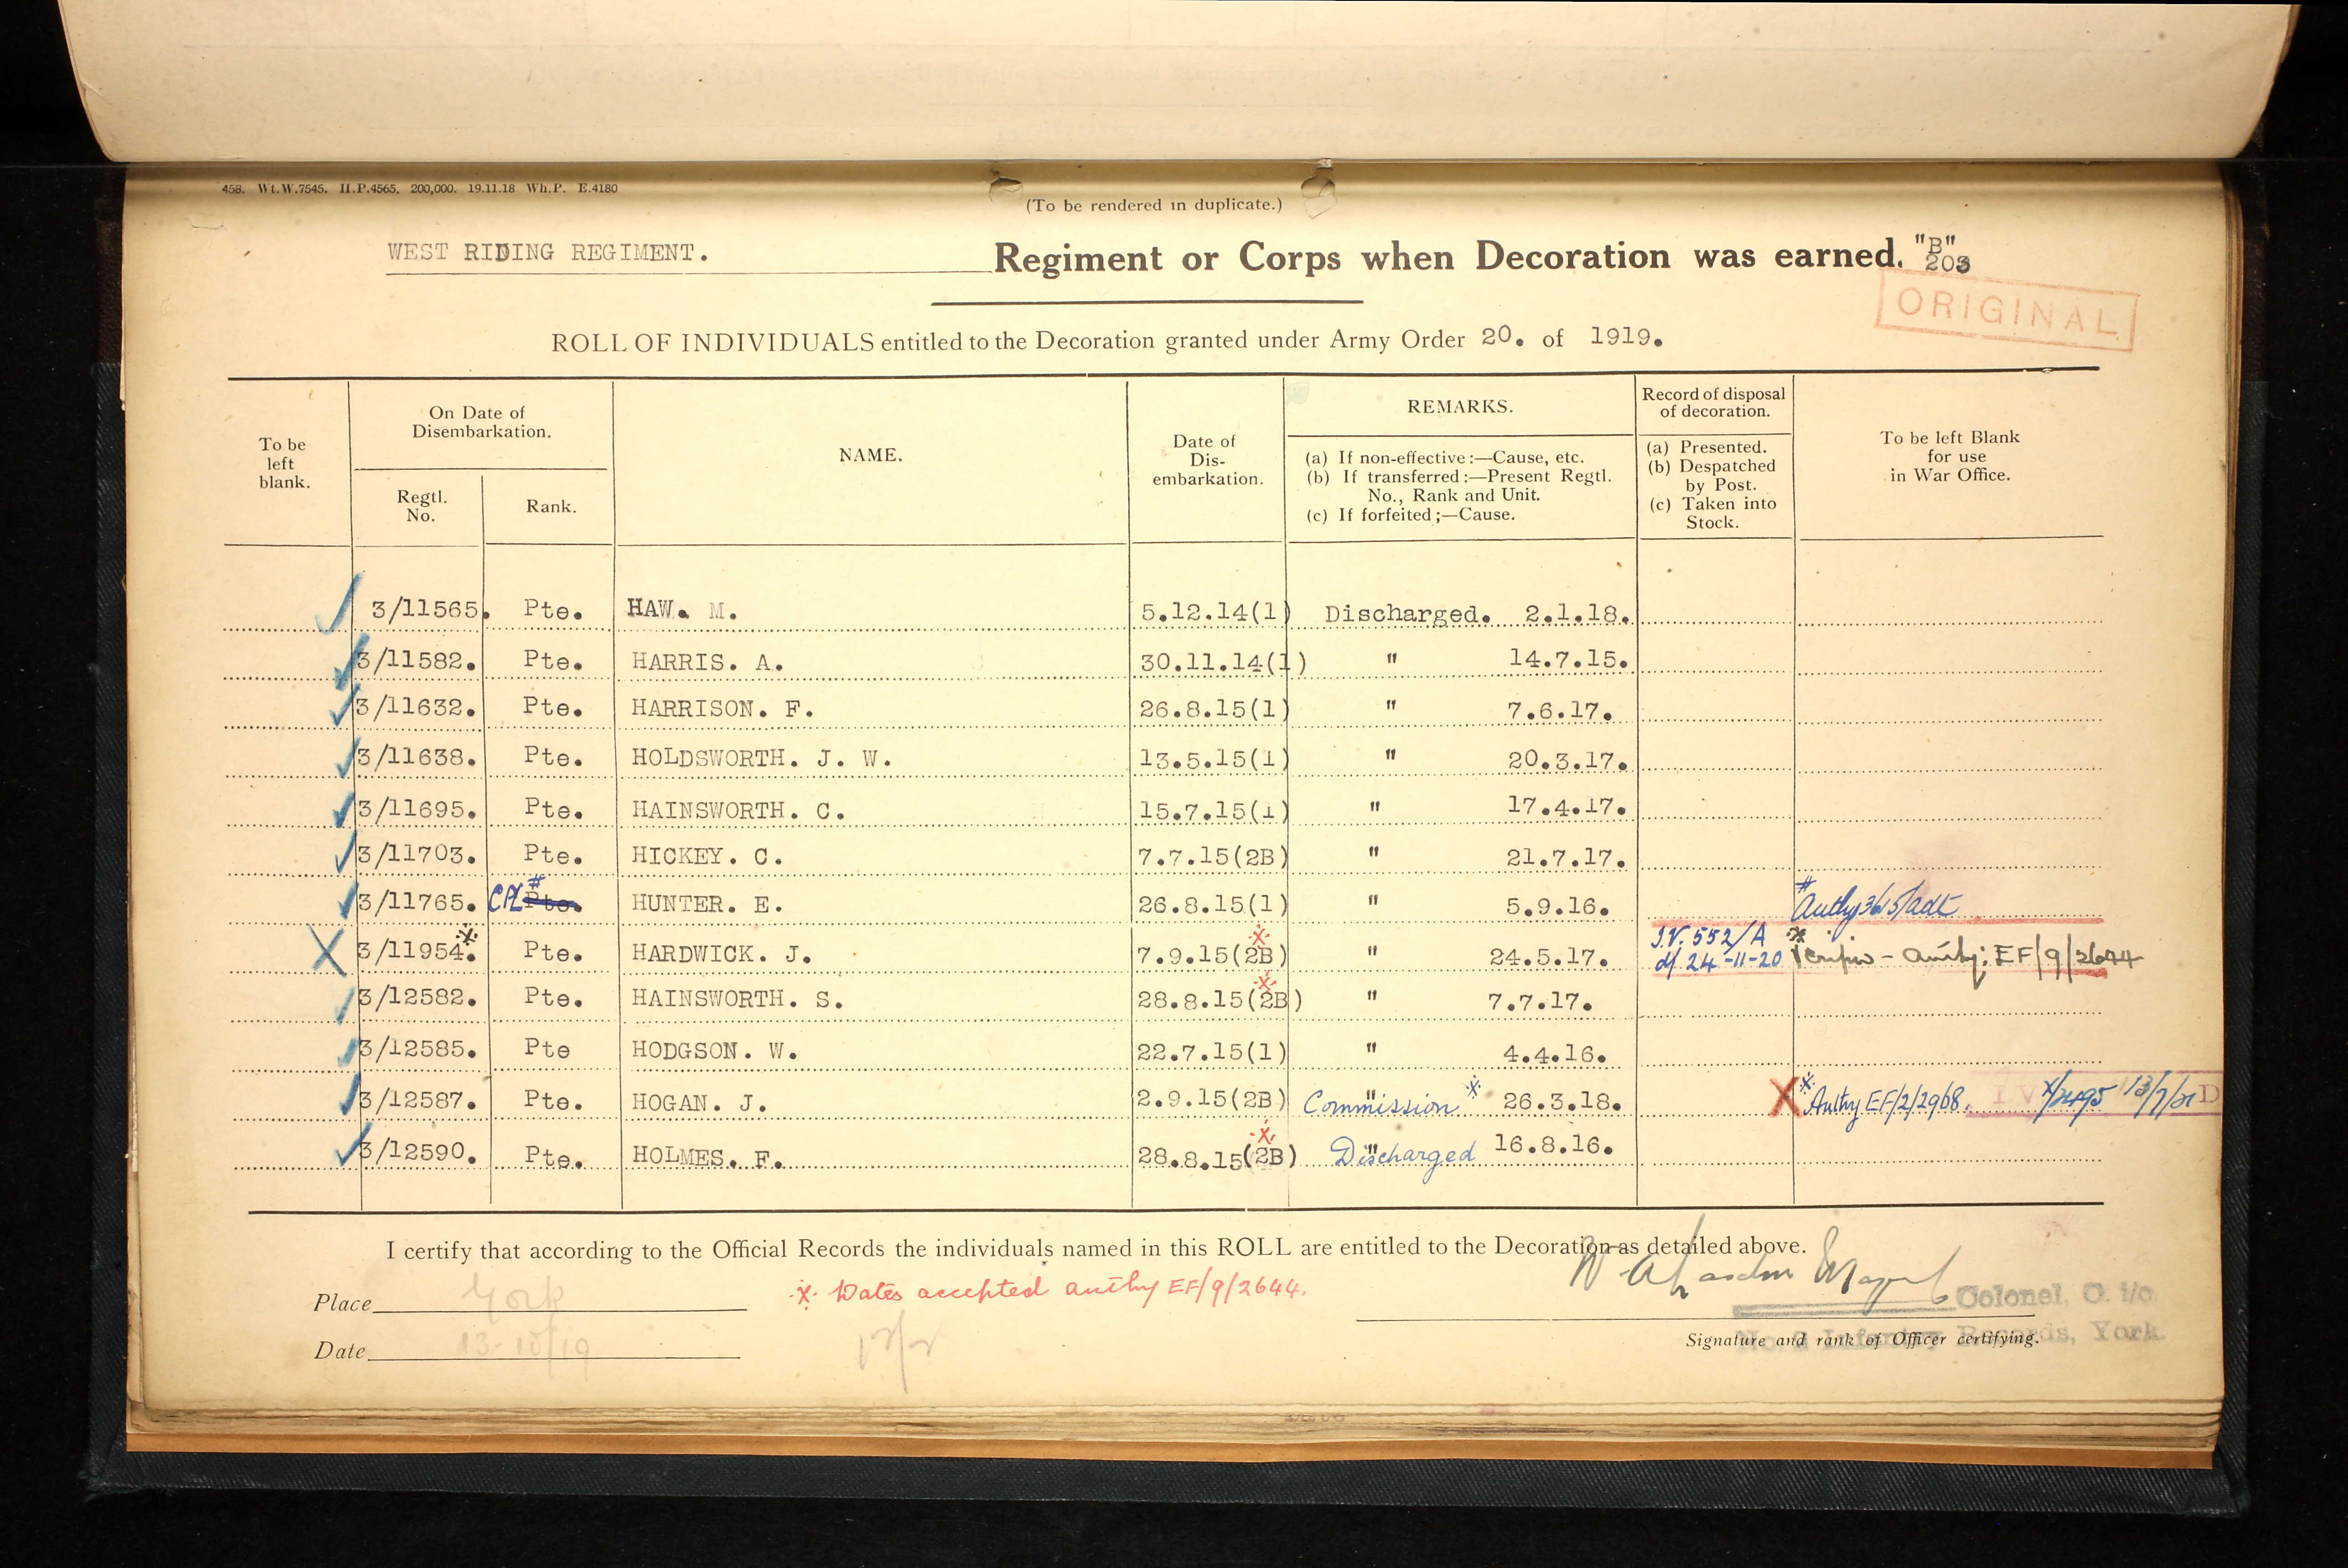 458. Wt.W.7545. H.P.4565. 200,000. 19.11.18 Wh.P. E.4180
(To be rendered in duplicate.)
WEST RIDING REGIMENT. Regiment or Corps when Decoration was earned. "B" 203
ORIGINAL
ROLL OF INDIVIDUALS entitled to the Decoration granted under Army Order 20. of 1919.
To be left blank.
On Date of Disembarkation.
Regtl. No.
Rank.
NAME.
Date of Dis-embarkation.
REMARKS.
(a) If non-effective:—Cause, etc.
(b) If transferred:—Present Regtl. No., Rank and Unit.
(c) If forfeited;—Cause.
Record of disposal of decoration.
(a) Presented.
(b) Despatched by Post.
(c) Taken into Stock.
To be left Blank for use in War Office.
3/11565. Pte. HAW. M. 5.12.14(1) Discharged. 2.1.18.
3/11582. Pte. HARRIS. A. 30.11.14(1) " 14.7.15.
3/11632. Pte. HARRISON. F. 26.8.15(1) " 7.6.17.
3/11638. Pte. HOLDSWORTH. J. W. 13.5.15(1) " 20.3.17.
3/11695. Pte. HAINSWORTH. C. 15.7.15(1) " 17.4.17.
3/11703. Pte. HICKEY. C. 7.7.15(2B) " 21.7.17.
3/11765. CPL # Pte. HUNTER. E. 26.8.15(1) " 5.9.16. # Authy
3/11954. Pte. HARDWICK. J. 7.9.15(2B) " 24.5.17. I.V. 552/A d/ 24-11-20 Authy: EF/9/2644
3/12582. Pte. HAINSWORTH. S. 28.8.15(2B) " 7.7.17.
3/12585. Pte HODGSON. W. 22.7.15(1) " 4.4.16.
3/12587. Pte. HOGAN. J. 2.9.15(2B) " Commission 26.3.18. X Authy EF/2/2968.
3/12590. Pte. HOLMES. F. 28.8.15(2B) " Discharged 16.8.16.
I certify that according to the Official Records the individuals named in this ROLL are entitled to the Decoration as detailed above.
Place York
Dates accepted authy EF/9/2644.
Colonel, O. i/c.
No. 2 Infantry Records, York.
Date 13-10/19
Signature and rank of Officer certifying.